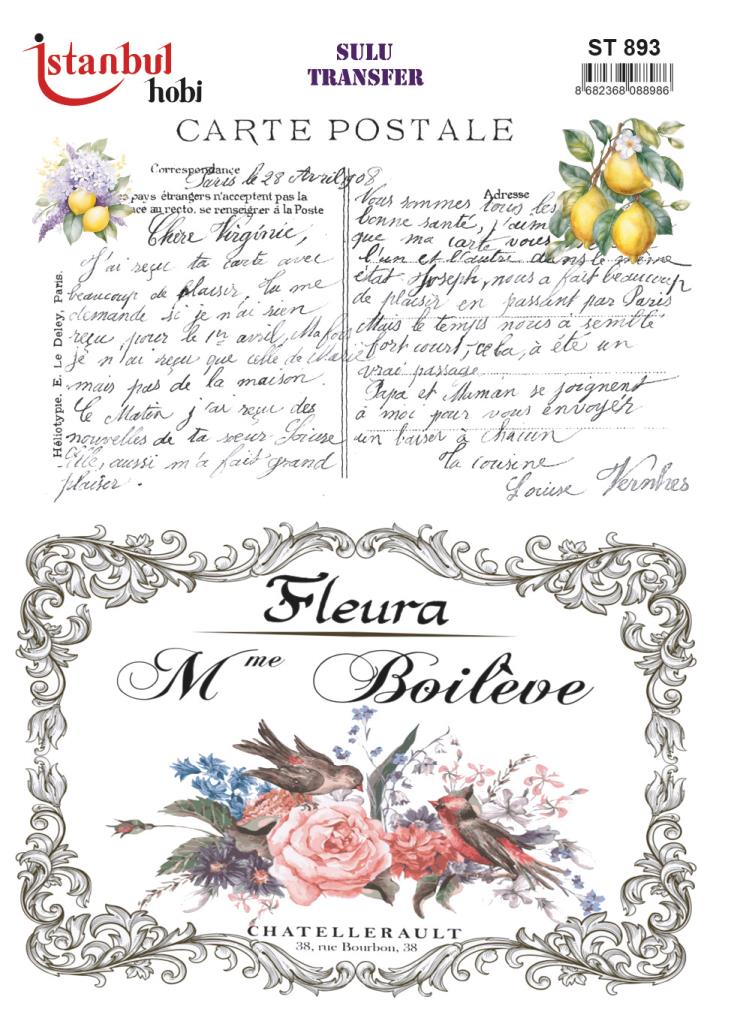 istanbul
hobi
SULU
TRANSFER
ST 893
8 682368 088986
CARTE POSTALE
Correspondance
Adresse
Paris le 28 Avril 908
pays étrangers n'acceptent pas la
ce au recto. se renseigner à la Poste
Chère Virginie,
J'ai reçu ta carte avec
beaucoup de plaisir, Tu me
demande si je n'ai rien
reçu, pour le 1er avril, Ma fois
je n'ai reçu que celle de Marie
mais pas de la maison.
Ce Matin j'ai reçu des
nouvelles de ta soeur Louise
Elle, aussi m'a fait grand
plaisir.
Héliotypie. E. Le Deley, Paris.
Vous sommes tous les
bonne santé, j'aim
que ma carte vous
l'un et l'autre dans le même
état Joseph, nous a fait beaucoup
de plaisir en passant par Paris
Mais le temps nous à semblé
fort court, cela, à été un
vrai passage
Papa et Maman se joignent
à moi pour vous envoyer
un baiser à Chacun
Ta cousine
Louise Vernhes
Fleura
Mme Boilève
CHATELLERAULT
38, rue Bourbon, 38